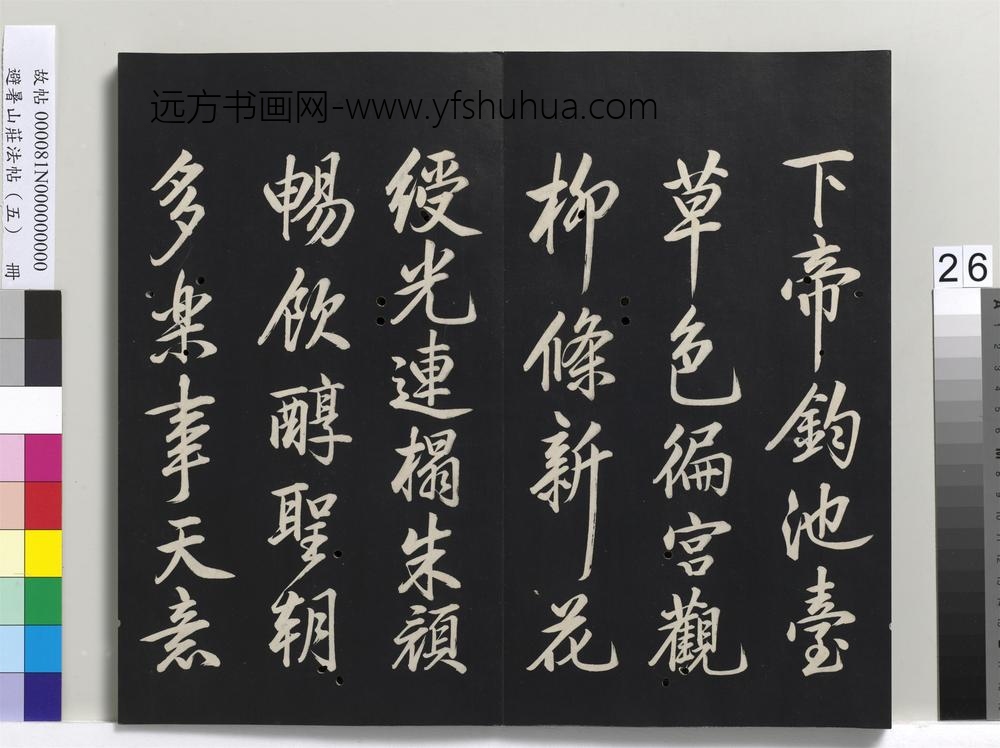 远方书画网-www.yfshuhua.com
下帝鈞池臺
草色徧宮觀
柳條新花
綬光連榻朱顔
暢飲醇聖朝
多楽事天意
故帖 000081N000000000
避暑山莊法帖（五） 冊
26